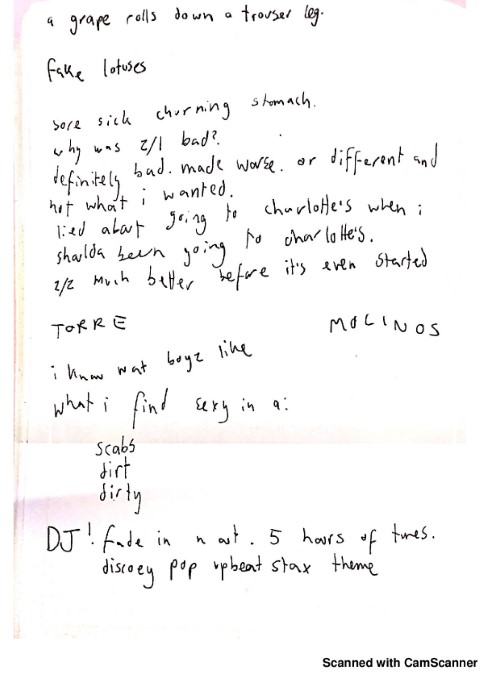 a grape rolls down a trouser leg.
fake lotuses
sore sick churning stomach.
why was 2/1 bad?
definitely bad. made worse. or different and
not what i wanted.
lied about going to charlotte's when i
shoulda been going to charlotte's.
2/2 much better before it's even started
TORRE MOLINOS
i know wat boyz like
what i find sexy in a:
scabs
dirt
dirty
DJ! fade in n out. 5 hours of tunes.
discoey pop upbeat stax theme
Scanned with CamScanner